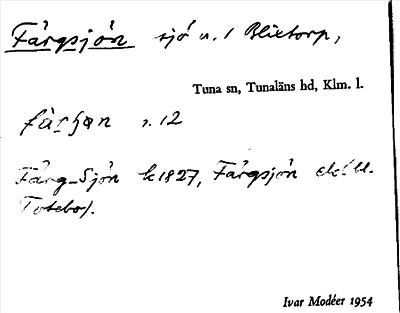 Färgsjön sjö n. 1 Blixtorp,
Tuna sn, Tunaläns hd, Klm. l.
r. 12
Färg-Sjön k 1827, Färgsjön ek. bl.
Totebo).
Ivar Modéer 1954